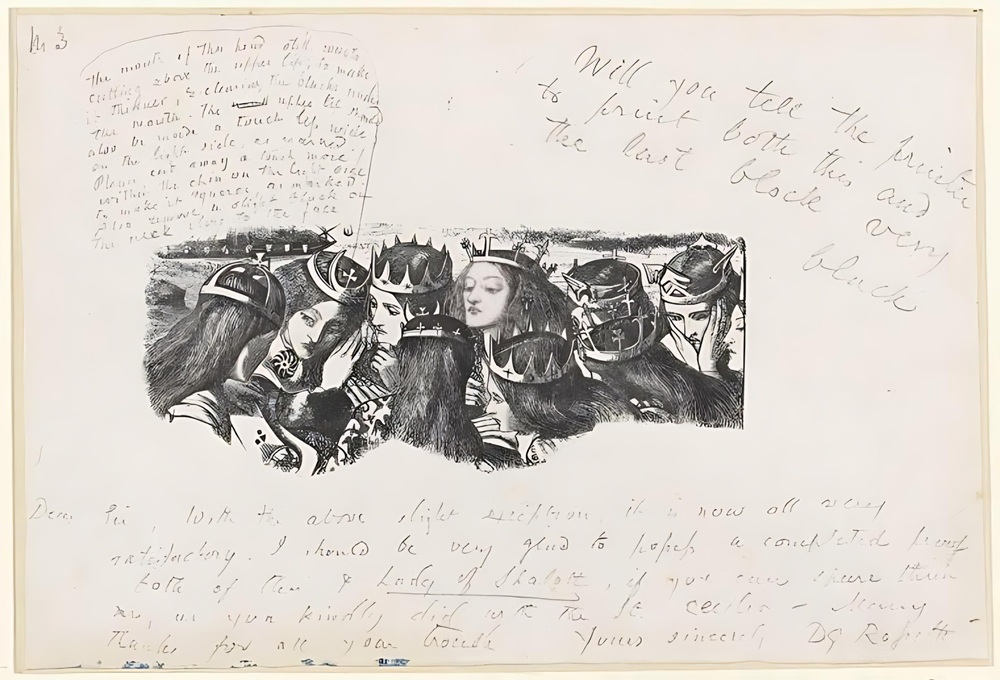 No 3
The mouth of this head still wants
cutting above the upper lip, to make
it thinner, & clearing the blacks under
the mouth. The upper lip should
also be made a touch less wide
on the light side, as marked.
Please cut away a touch more
within the chin on the light side
to make it squarer, as marked.
Also remove a slight black
the neck close to the face
Will you tell the printer
to print both this and
the last block very
black
Dear Sir, With the above slight exception, it is now all very
satisfactory. I should be very glad to possess a completed proof
both of this & Lady of Shalott, if you can spare them
me, as you kindly did with the St. Cecilia – Many
thanks for all your trouble Yours sincerely DG Rossetti